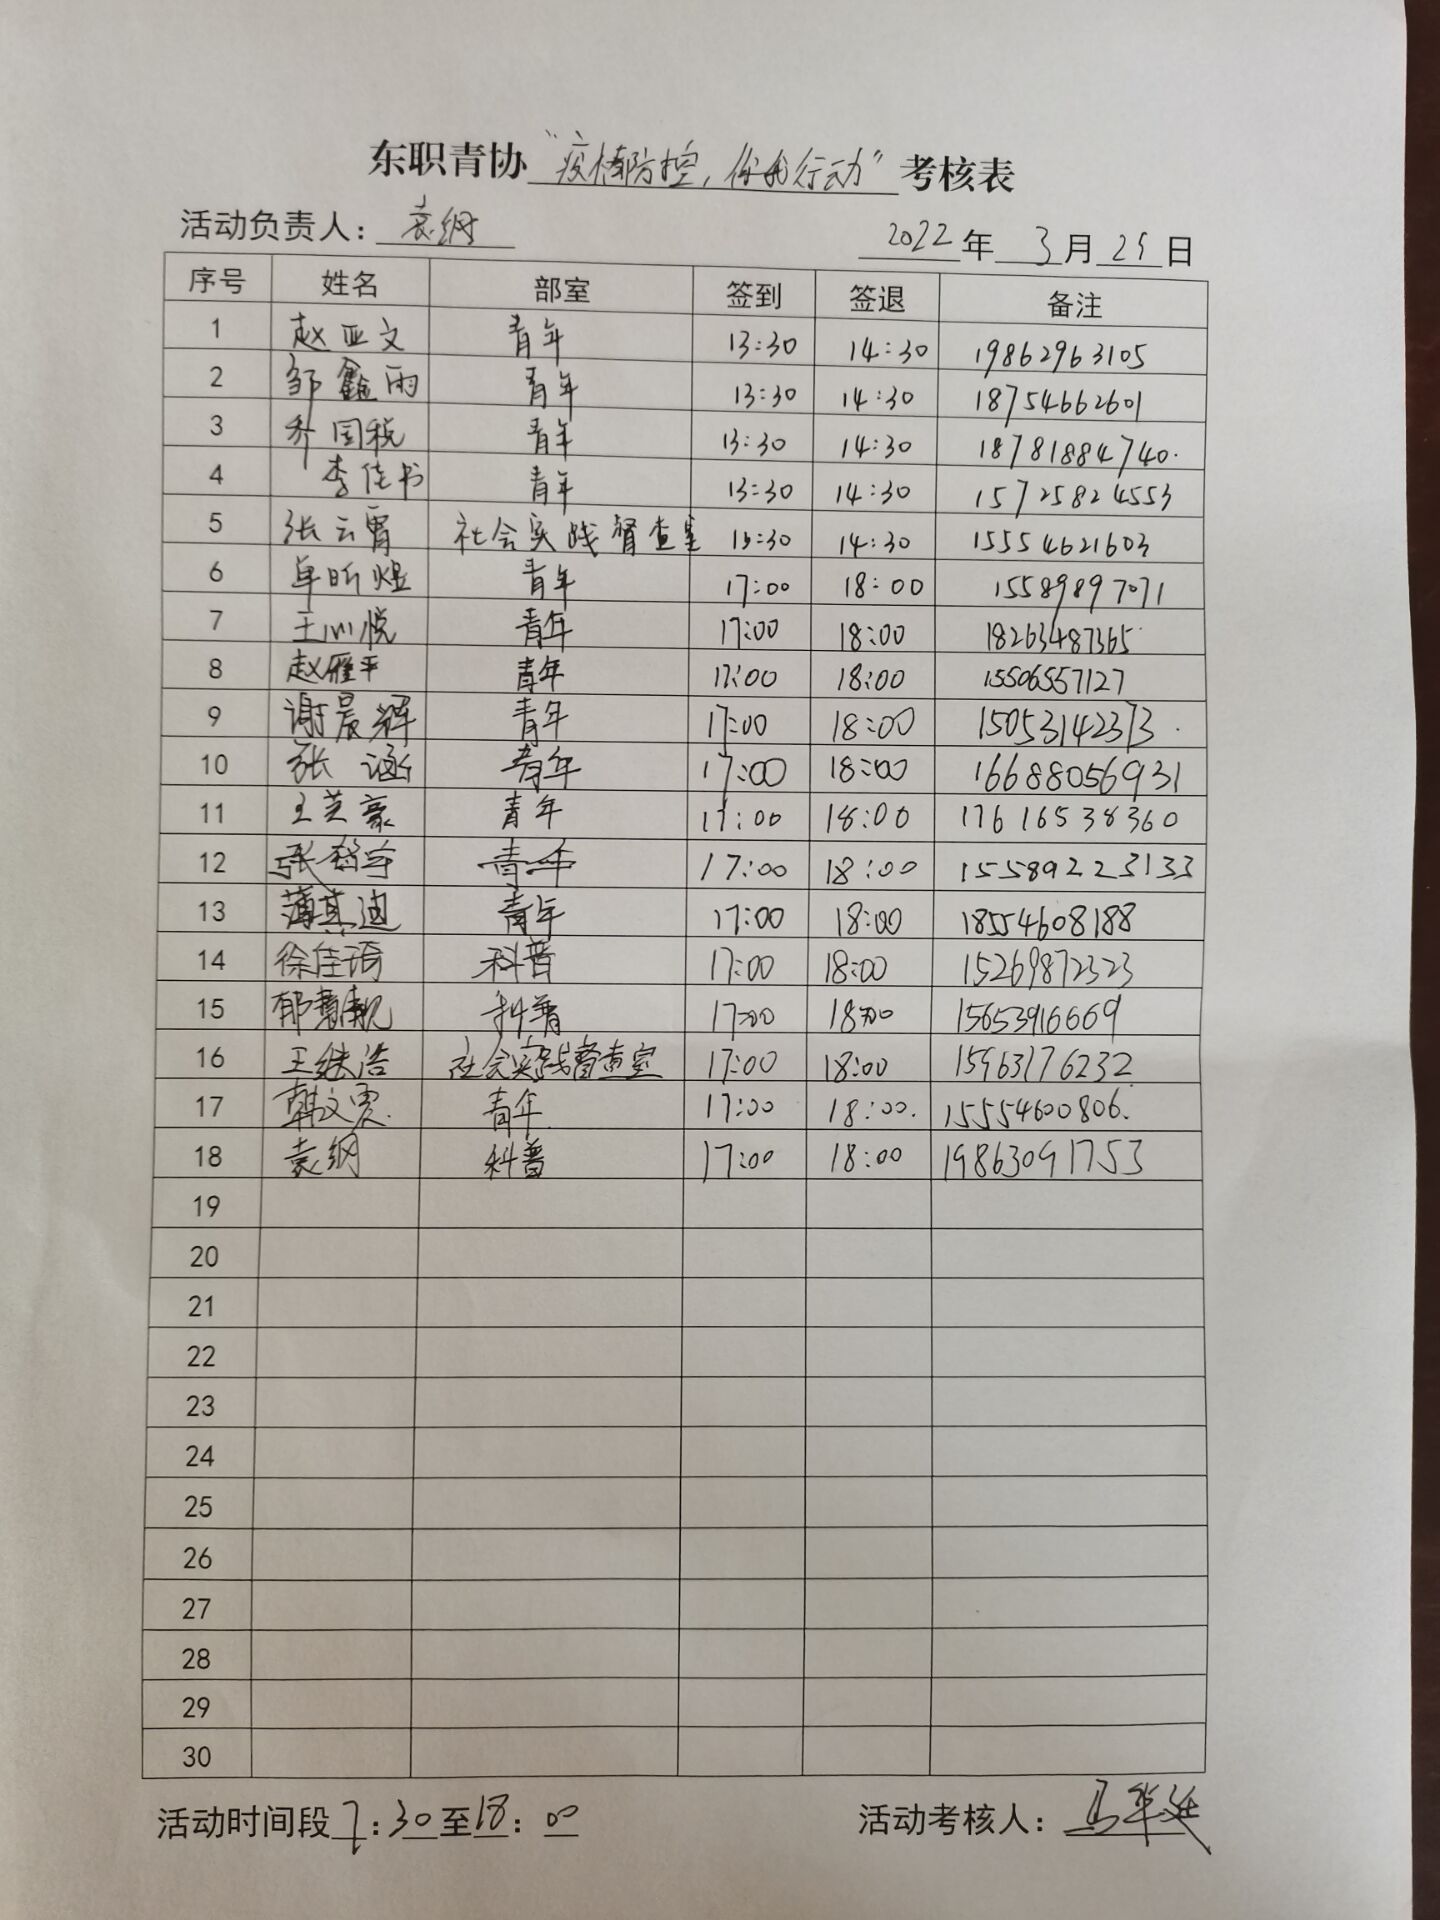 东职青协“疫情防控，你我行动”考核表
活动负责人：袁纲
2022年3月25日
序号 姓名 部室 签到 签退 备注
1 赵亚文 青年 13:30 14:30 19862963105
2 邹鑫雨 青年 13:30 14:30 18754662601
3 乔国税 青年 13:30 14:30 18781884740.
4 李佳书 青年 13:30 14:30 15725824553
5 张云霄 社会实践督查室 13:30 14:30 15554621603
6 单昕煜 青年 17:00 18:00 15589897071
7 王心悦 青年 17:00 18:00 18263487365
8 赵雁平 青年 17:00 18:00 15506557127
9 谢晨辉 青年 17:00 18:00 15053142373
10 张涵 青年 17:00 18:00 16688056931
11 王芝豪 青年 17:00 18:00 17616538360
12 张 青年 17:00 18:00 15589223133
13 薄其迪 青年 17:00 18:00 18554608188
14 徐佳琦 科普 17:00 18:00 15269872323
15 郁 科普 17:00 18:00 15653916669
16 王继浩 社会实践督查室 17:00 18:00 15963176232
17 韩文贾. 青年 17:00 18:00. 15554600806.
18 袁纲 科普 17:00 18:00 19863091753
19
20
21
22
23
24
25
26
27
28
29
30
活动时间段7:30至18:00
活动考核人：马华廷